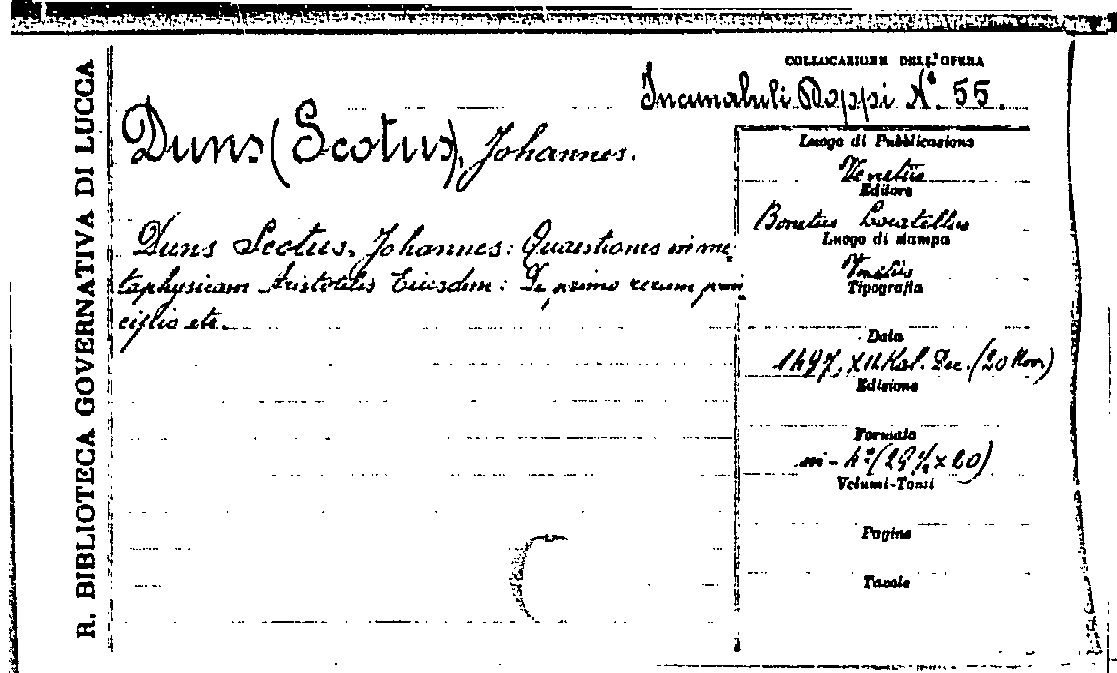 R. BIBLIOTECA GOVERNATIVA DI LUCCA
COLLOCAZIONE DELL'OPERA
Incunabuli Doppi N.º 55.
Duns (Scotus), Johannes.
Duns Scotus, Johannes: Quaestiones in me
taphysicam Aristotelis Eiusdem: De primo rerum prin
cipio etc.
Luogo di Pubblicazione
Venetiis
Editore
Bonetus Locatellus
Luogo di stampa
Venetiis
Tipografia
Data
1497, XII Kal. Dec. (20 Nov)
Edizione
Formato
in-4º (29½ x 20)
Volumi-Tomi
Pagine
Tavole